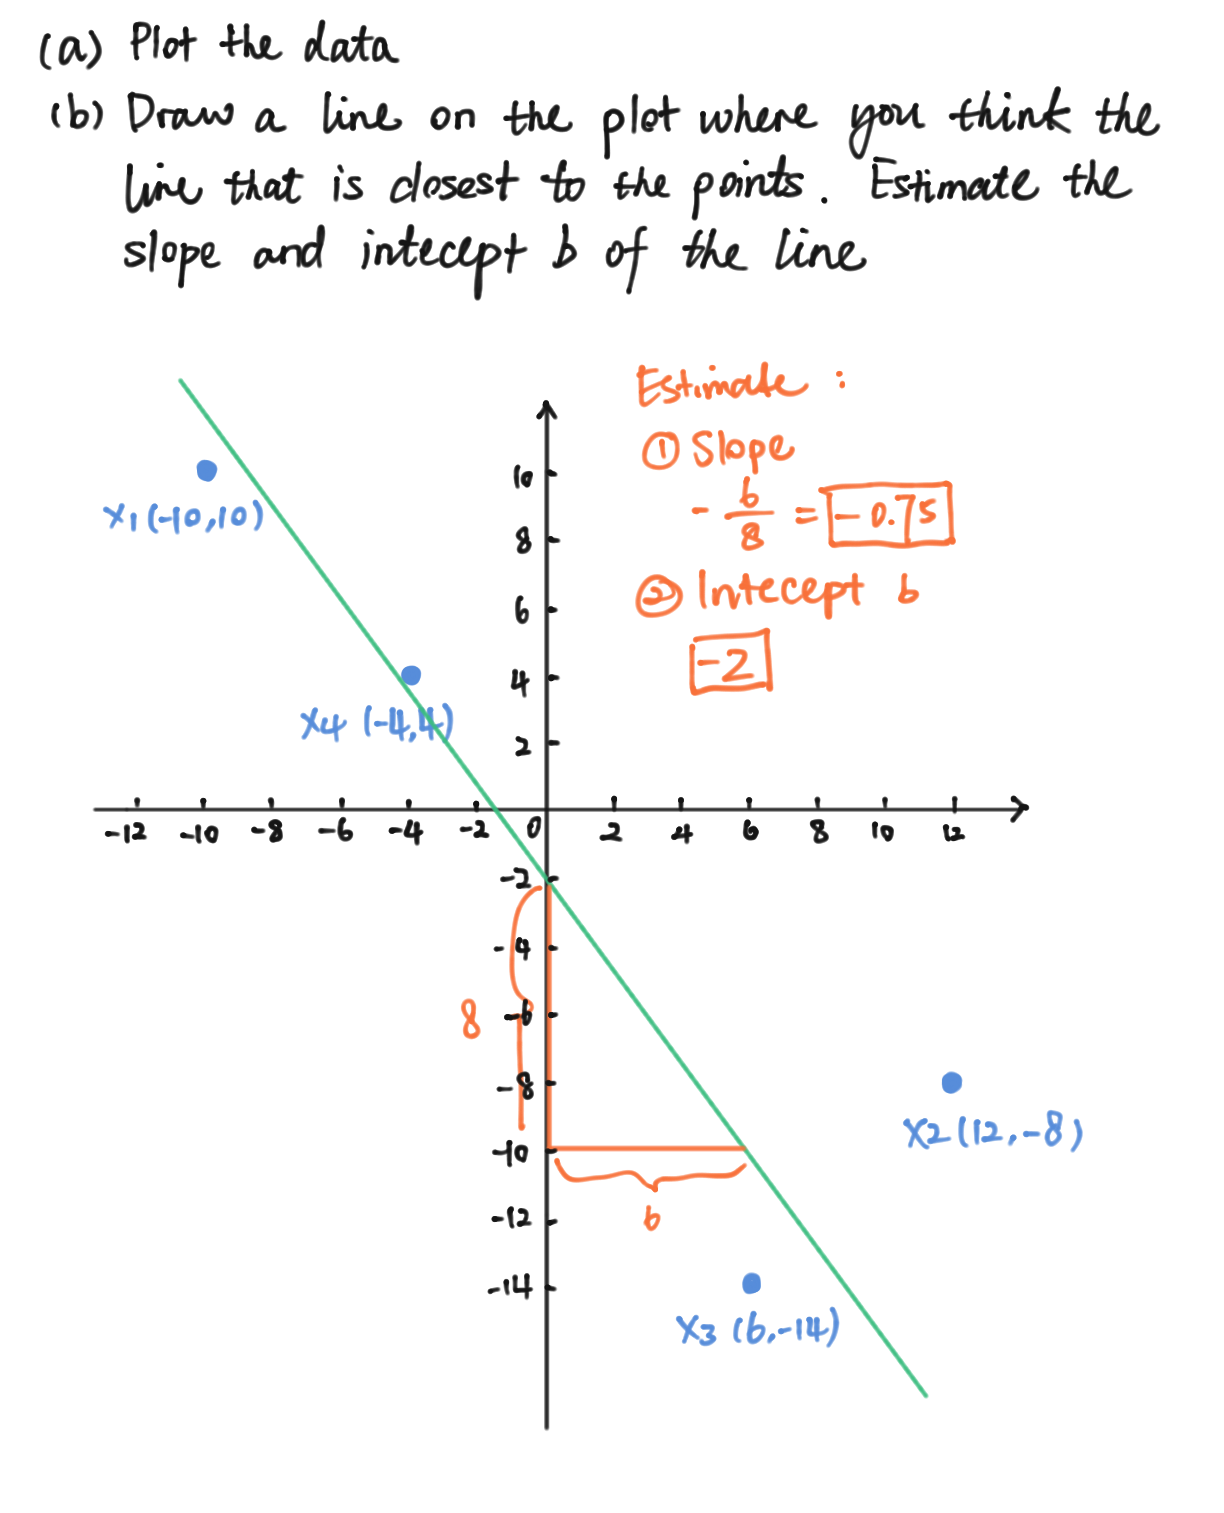 (a) Plot the data
(b) Draw a line on the plot where you think the
line that is closest to the points. Estimate the
slope and intecept b of the line
Estimate :
① Slope
- 6/8 = -0.75
② Intecept b
-2
10
8
6
4
2
x1 (-10,10)
x4 (-4,4)
-12 -10 -8 -6 -4 -2 0 2 4 6 8 10 12
-2
-4
-6
-8
-10
-12
-14
8
6
x2 (12,-8)
x3 (6,-14)